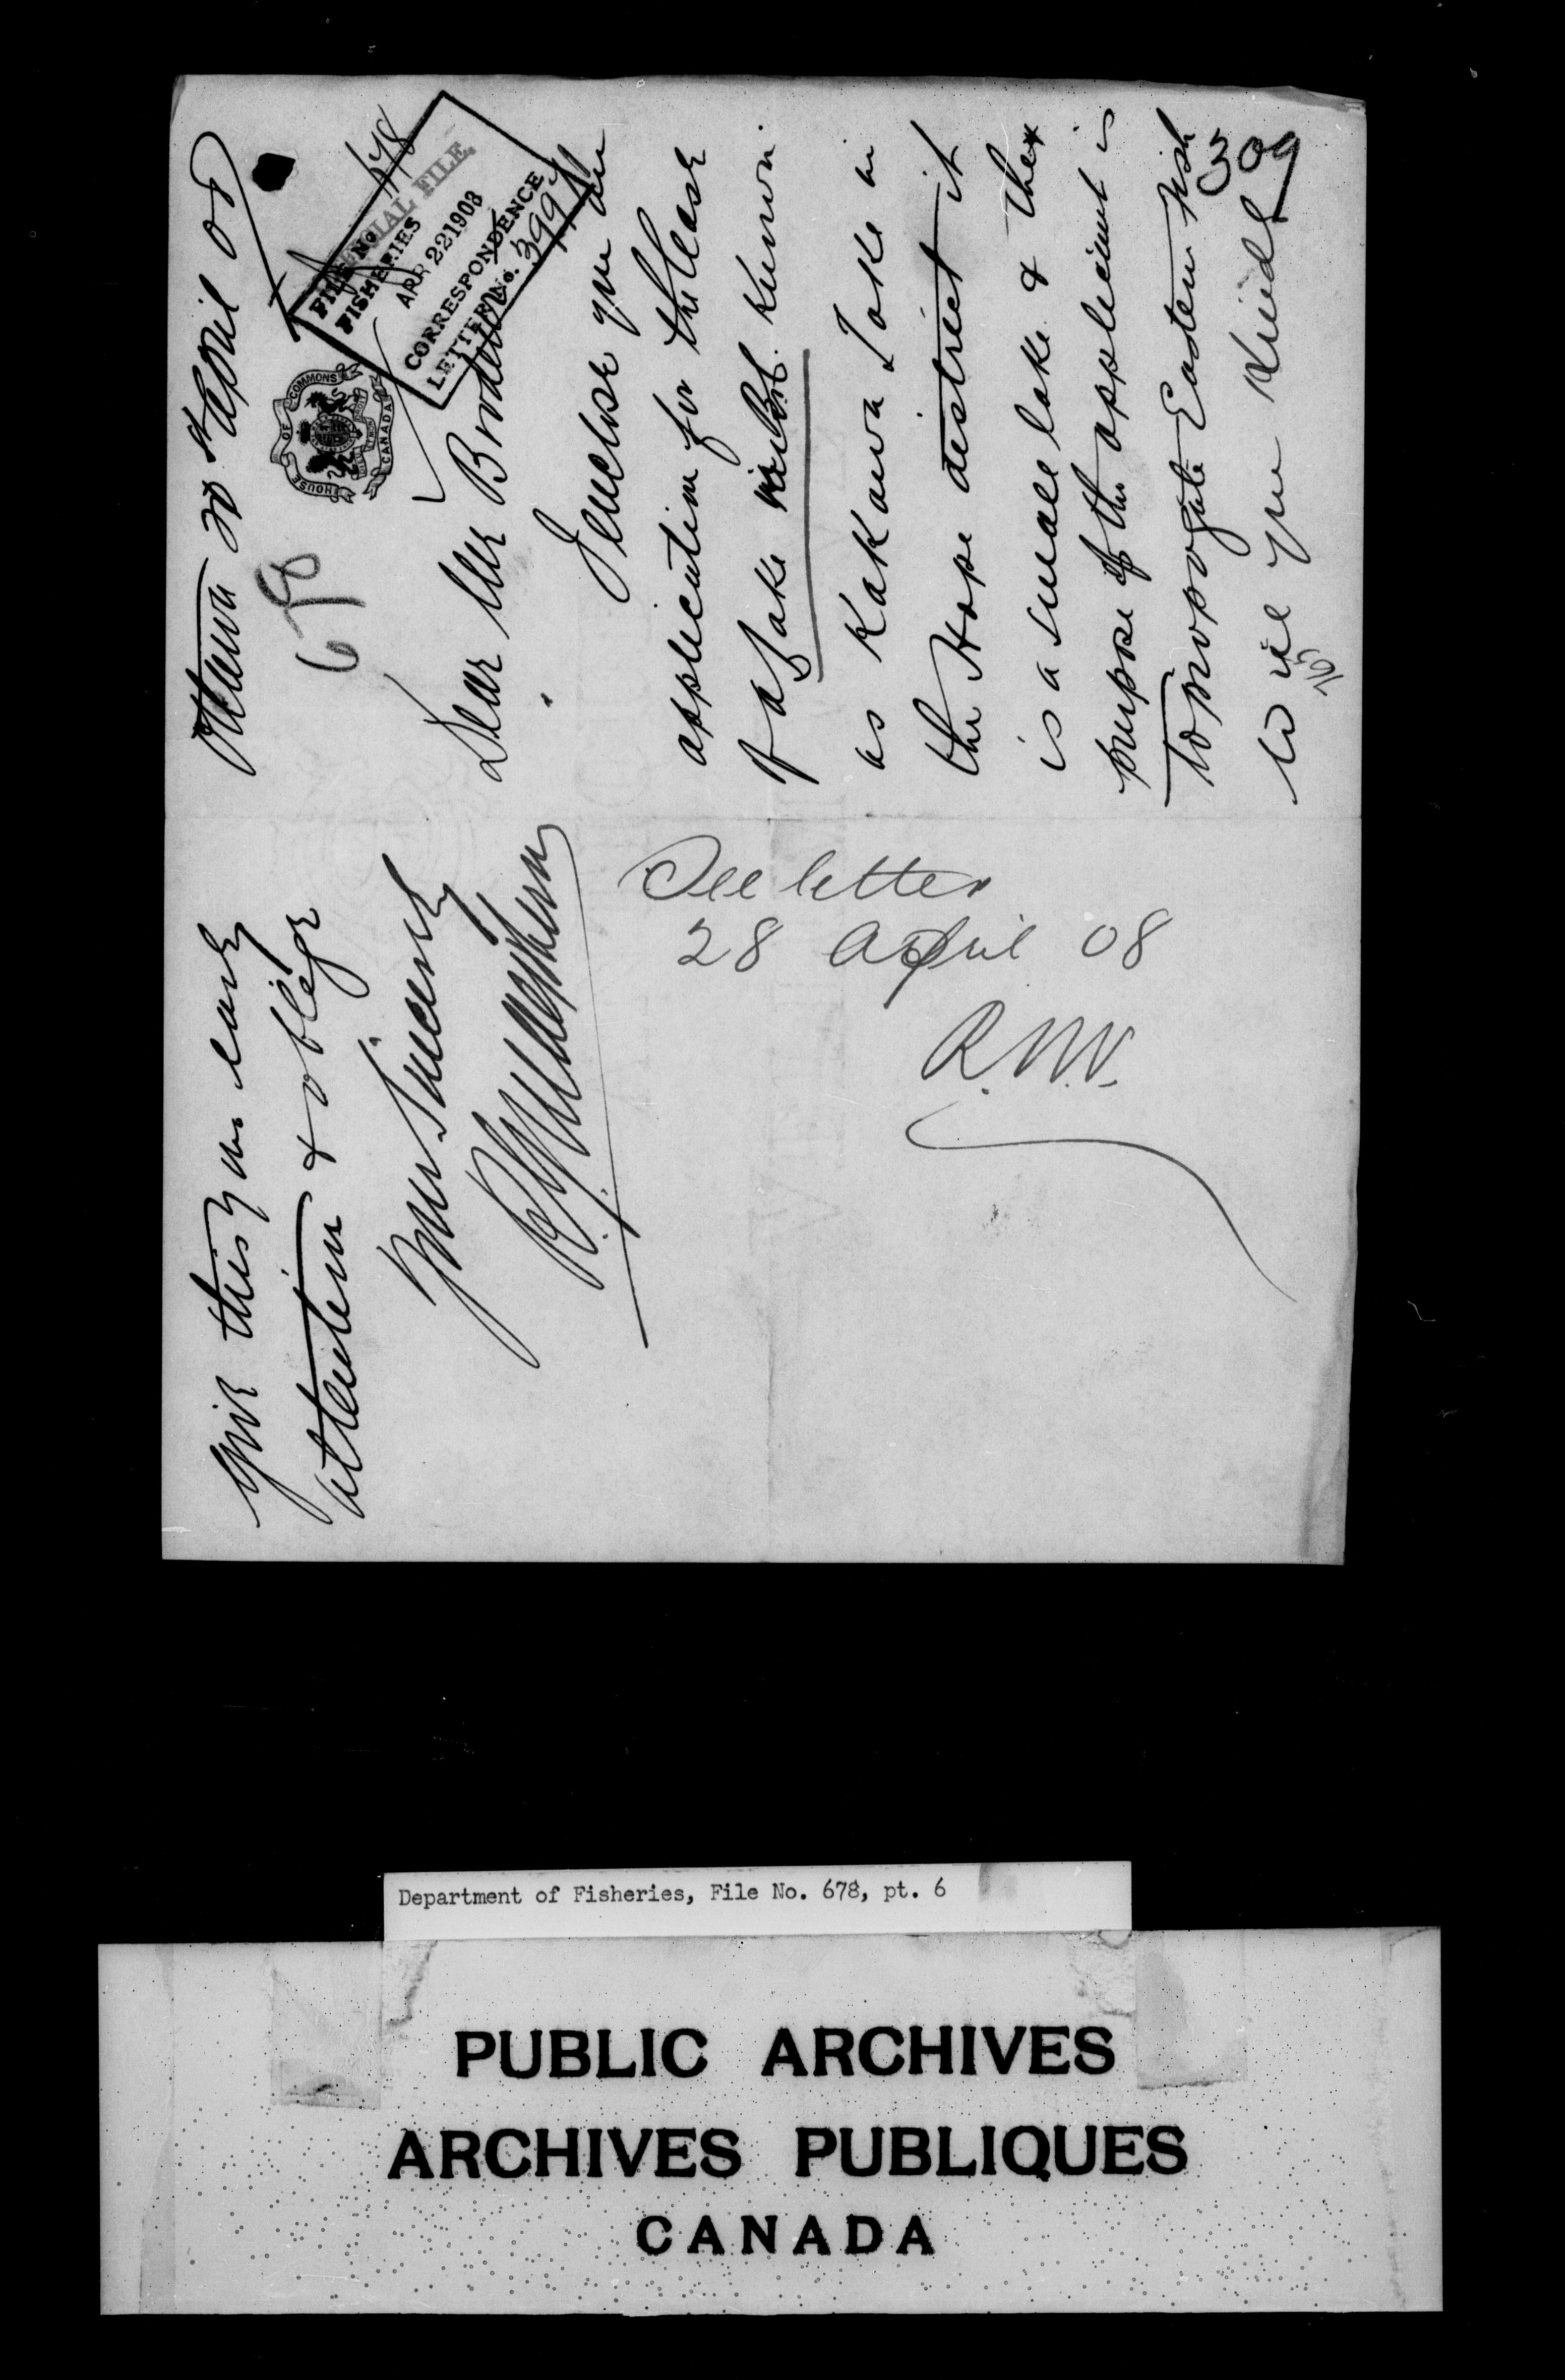 Ottawa 20th April 08
678
HOUSE OF COMMONS
CANADA
FILE No. 678
FISHERIES
APR 22 1908
CORRESPONDENCE
LETTER No.
Dear Mr Brodeur
I enclose you an
application for the lease
of a Lake in B.C. known
as Kakawa Lake in
the Hope district it
is a small lake & the
purpose of the applicant is
to propogate Eastern fish
309
will you kindly
give this yr early
attention & oblige
Yours Sincerely
See letter
28 April 08
R.N.V.
Department of Fisheries, File No. 678, pt. 6
PUBLIC ARCHIVES
ARCHIVES PUBLIQUES
CANADA